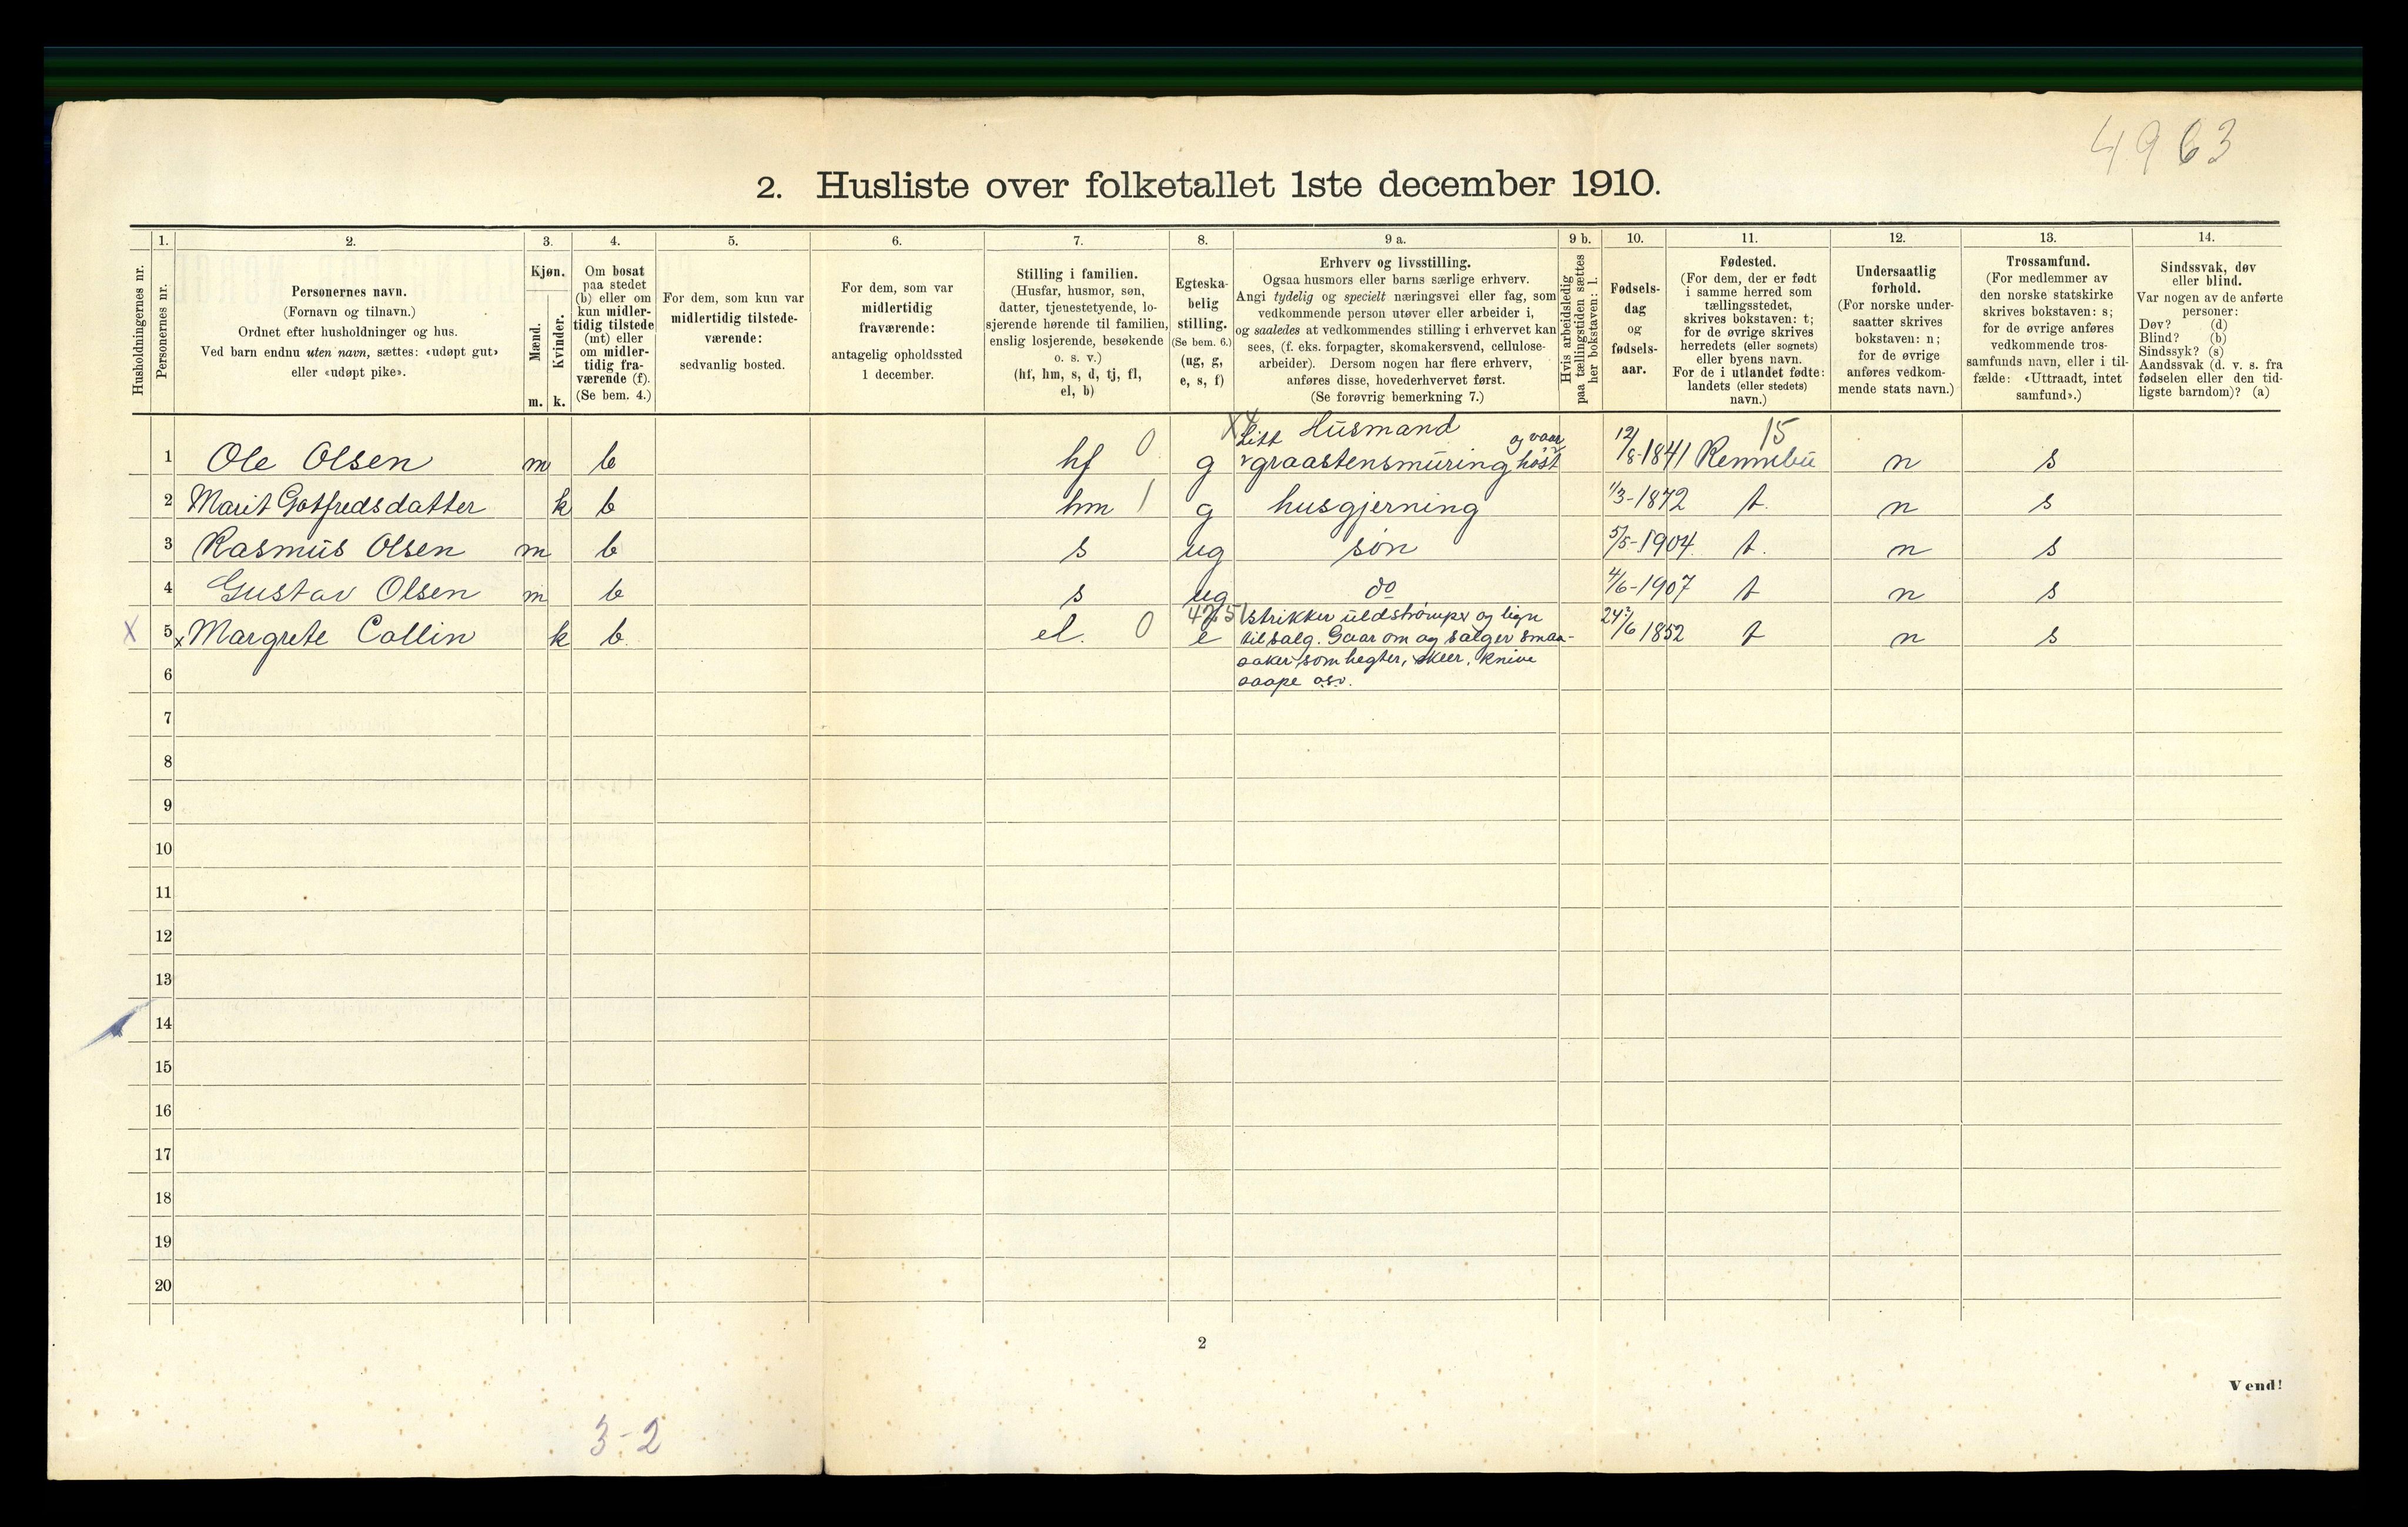 4963
2. Husliste over folketallet 1ste december 1910.
Husholdningernes nr.
1.
Personernes nr.
2.
Personernes navn.
(Fornavn og tilnavn.)
Ordnet efter husholdninger og hus.
Ved barn endnu uten navn, sættes: «udøpt gut»
eller «udøpt pike».
3.
Kjøn.
Mænd.
Kvinder.
m. k.
4.
Om bosat
paa stedet
(b) eller om
kun midler-
tidig tilstede
(mt) eller
om midler-
tidig fra-
værende (f).
(Se bem. 4.)
5.
For dem, som kun var
midlertidig tilstede-
værende:
sedvanlig bosted.
6.
For dem, som var
midlertidig
fraværende:
antagelig opholdssted
1 december.
7.
Stilling i familien.
(Husfar, husmor, søn,
datter, tjenestetyende, lo-
sjerende hørende til familien,
enslig losjerende, besøkende
o. s. v.)
(hf, hm, s, d, tj, fl,
el, b)
8.
Egteska-
belig
stilling.
(Se bem. 6.)
(ug, g,
e, s, f)
9 a.
Erhverv og livsstilling.
Ogsaa husmors eller barns særlige erhverv.
Angi tydelig og specielt næringsvei eller fag, som
vedkommende person utøver eller arbeider i,
og saaledes at vedkommendes stilling i erhvervet kan
sees, (f. eks. forpagter, skomakersvend, cellulose-
arbeider). Dersom nogen har flere erhverv,
anføres disse, hovederhvervet først.
(Se forøvrig bemerkning 7.)
9 b.
Hvis arbeidsledig
paa tællingstiden sættes
her bokstaven: l.
10.
Fødsels-
dag
og
fødsels-
aar.
11.
Fødested.
(For dem, der er født
i samme herred som
tællingsstedet,
skrives bokstaven: t;
for de øvrige skrives
herredets (eller sognets)
eller byens navn.
For de i utlandet fødte:
landets (eller stedets)
navn.)
12.
Undersaatlig
forhold.
(For norske under-
saatter skrives
bokstaven: n;
for de øvrige
anføres vedkom-
mende stats navn.)
13.
Trossamfund.
(For medlemmer av
den norske statskirke
skrives bokstaven: s;
for de øvrige anføres
vedkommende tros-
samfunds navn, eller i til-
fælde: «Uttraadt, intet
samfund».)
14.
Sindssvak, døv
eller blind.
Var nogen av de anførte
personer:
Døv? (d)
Blind? (b)
Sindssyk? (s)
Aandssvak (d. v. s. fra
fødselen eller den tid-
ligste barndom)? (a)
1 Ole Olsen m b hf 0 g Husmand
Litt graastensmuring og vaar høst 12/8-1841 Rennebu 15 n s
2 Marit Gotfredsdatter k b hm 1 g husgjerning 1/3-1872 t. n s
3 Rasmus Olsen m b s ug søn 5/5-1904 t. n s
4 Gustav Olsen m b s ug do 4/6-1907 t n s
X 5 x Margrete Collin k b. el. 0 e strikker uldstrømper og lign
til salg. Gaar om og sælger smaa-
saker som hegter, skeer, knive
saape osv. 24/6 1852 t n s
6
7
8
9
10
11
12
13
14
15
16
17
18
19
20
2
Vend!
3-2